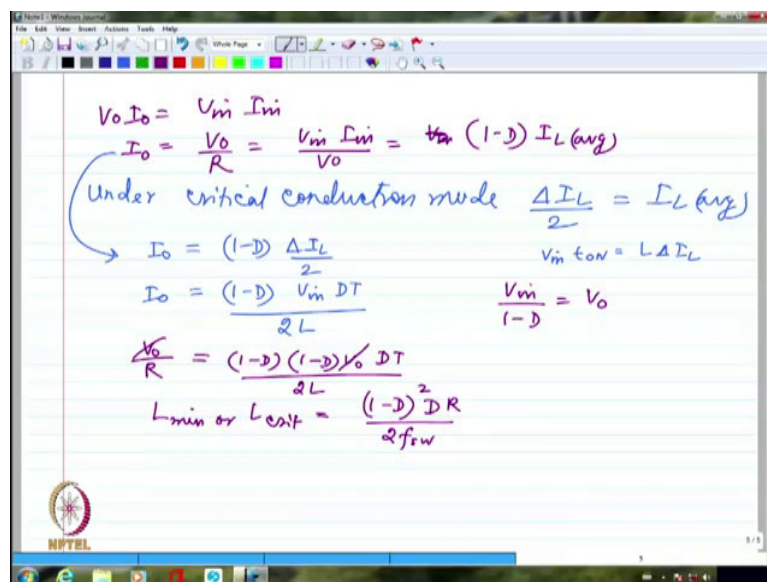 Note1 - Windows Journal
File Edit View Insert Actions Tools Help
Whole Page
B I
V0 I0 = Vin Iin
I0 = V0/R = Vin Iin/V0 = (1-D) IL(avg)
Under critical conduction mode ΔIL/2 = IL(avg)
I0 = (1-D) ΔIL/2
Vin ton = L ΔIL
I0 = (1-D) Vin DT/2L
Vin/1-D = V0
V0/R = (1-D)(1-D)V0 DT/2L
Lmin or Lcrit = (1-D)² D R/2fsw
NPTEL
5/5
5